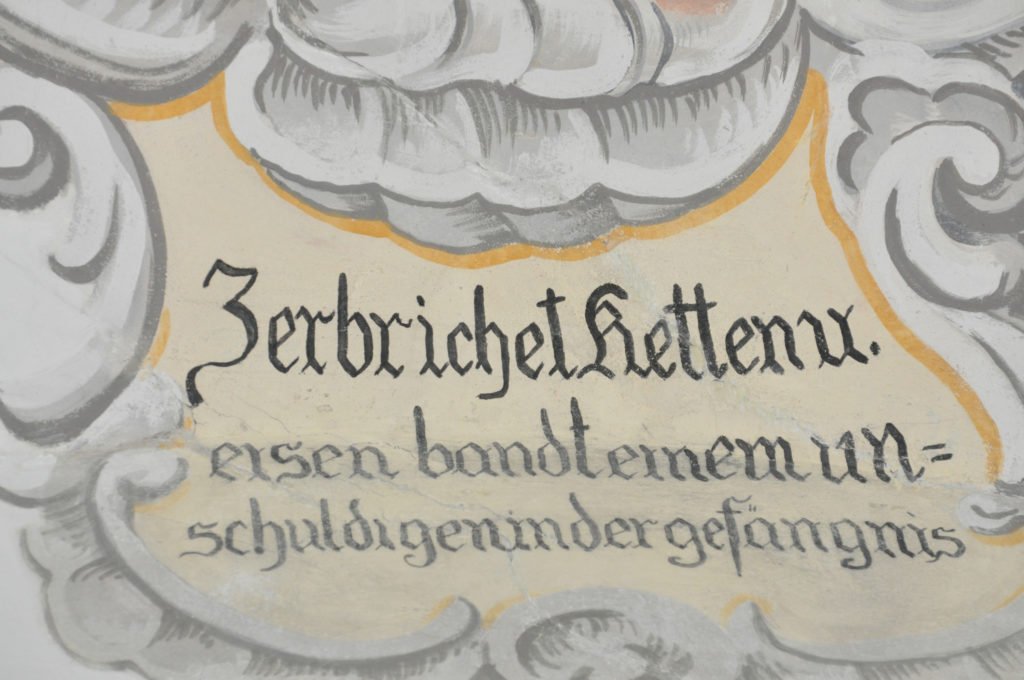 Zerbrichet Ketten u.
eisen bandt einem un=
schuldigen in der gefängnis